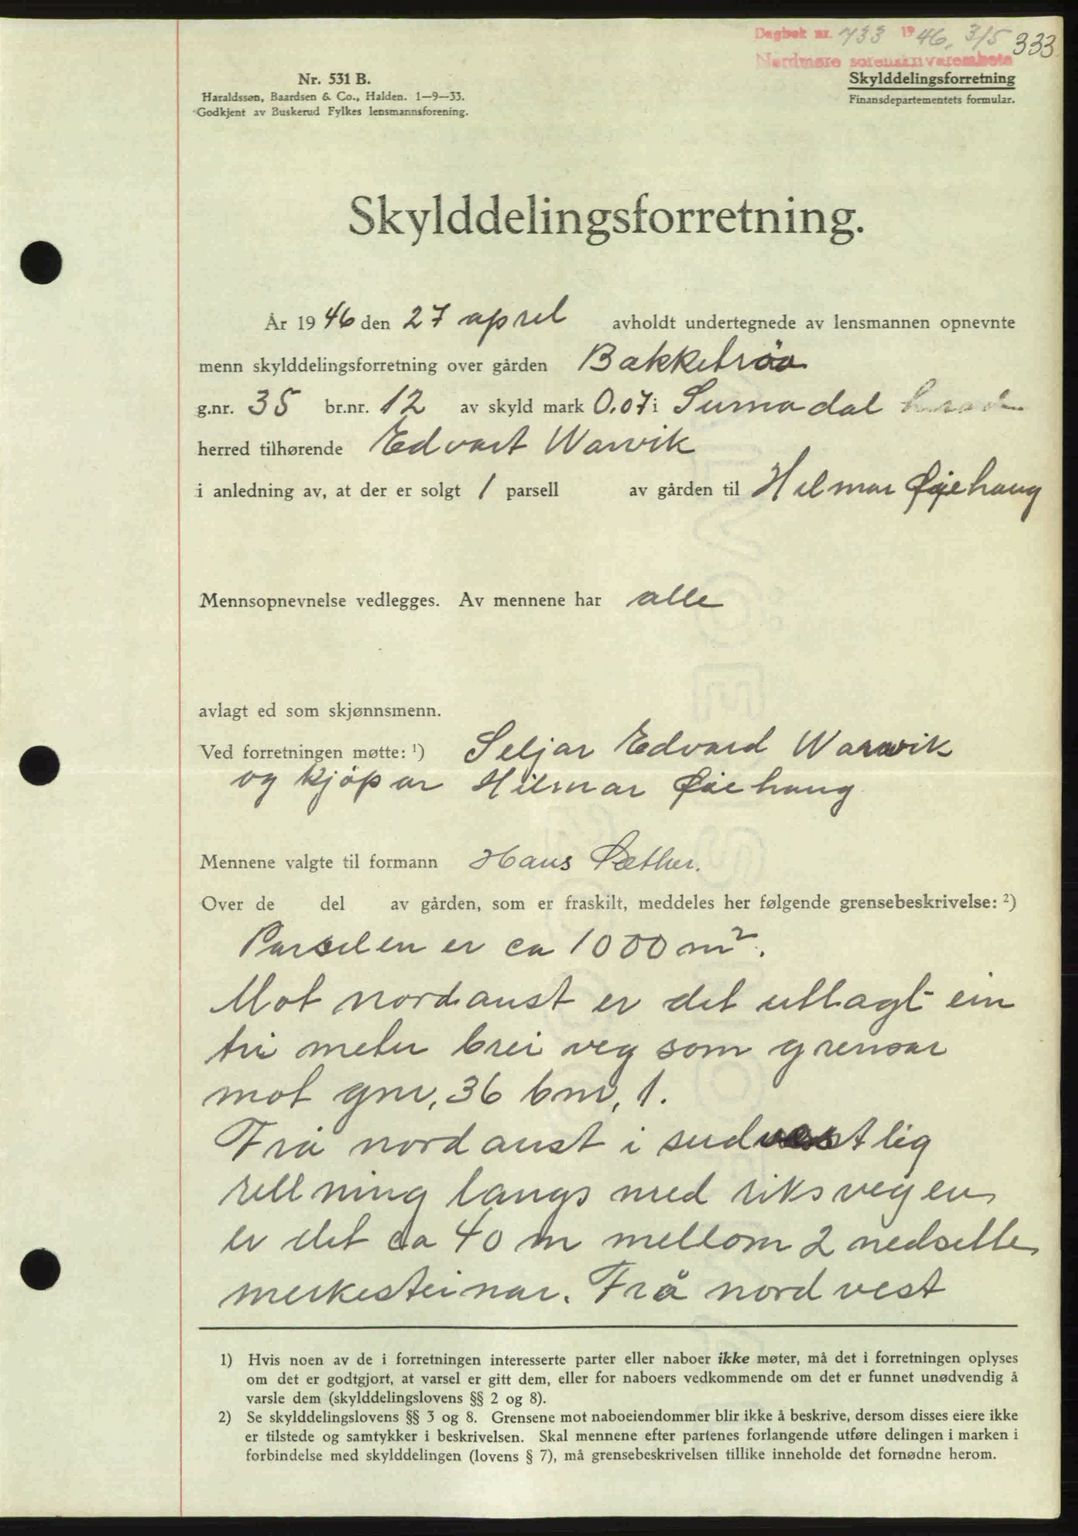 Dagbok nr. 733 1946. 3/5 333
Nordmøre sorenskriverembete
Nr. 531 B.
Haraldssøn, Baardsen & Co., Halden. 1—9—33.
Godkjent av Buskerud Fylkes lensmannsforening.
Skylddelingsforretning
Finansdepartementets formular.
Skylddelingsforretning.
År 1946 den 27 april avholdt undertegnede av lensmannen opnevnte
menn skylddelingsforretning over gården Bakketrøa
g.nr. 35 br.nr. 12 av skyld mark 0.07 i Surnadal
herred tilhørende Edvart Warvik
i anledning av, at der er solgt 1 parsell av gården til Hilmar Øyehaug
Mennsopnevnelse vedlegges. Av mennene har alle
avlagt ed som skjønnsmenn.
Ved forretningen møtte: ¹) Seljar Edvard Warvik
og kjøpar Hilmar Øiehaug
Mennene valgte til formann Hans Sæther.
Over de del av gården, som er fraskilt, meddeles her følgende grensebeskrivelse: ²)
Parselen er ca 1000 m².
Mot nordaust er det uttagt ein
tri meter brei veg som grensar
mot gnr. 36 bnr. 1.
Frå nordaust i sudvestlig
rettning langs med riksvegen
er det ca 40 m mellom 2 nedsette
merkesteinar. Frå nordvest
1) Hvis noen av de i forretningen interesserte parter eller naboer ikke møter, må det i forretningen oplyses
om det er godtgjort, at varsel er gitt dem, eller for naboers vedkommende om det er funnet unødvendig å
varsle dem (skylddelingslovens §§ 2 og 8).
2) Se skylddelingslovens §§ 3 og 8. Grensene mot naboeiendommer blir ikke å beskrive, dersom disses eiere ikke
er tilstede og samtykker i beskrivelsen. Skal mennene efter partenes forlangende utføre delingen i marken i
forbindelse med skylddelingen (lovens § 7), må grensebeskrivelsen tillike inneholde det fornødne herom.